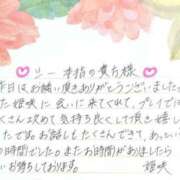 ♡ リー本指の貴方様 ♡
昨日はお誘い頂きありがとうございました
た姫咲に会いに来てくれて、プレイでは
くさん攻めて気持ち良くして頂き嬉し
たです お話しもたくさんできて、あっとい
の時間でした またお時間がありましたら
お待ちしております。 姫咲